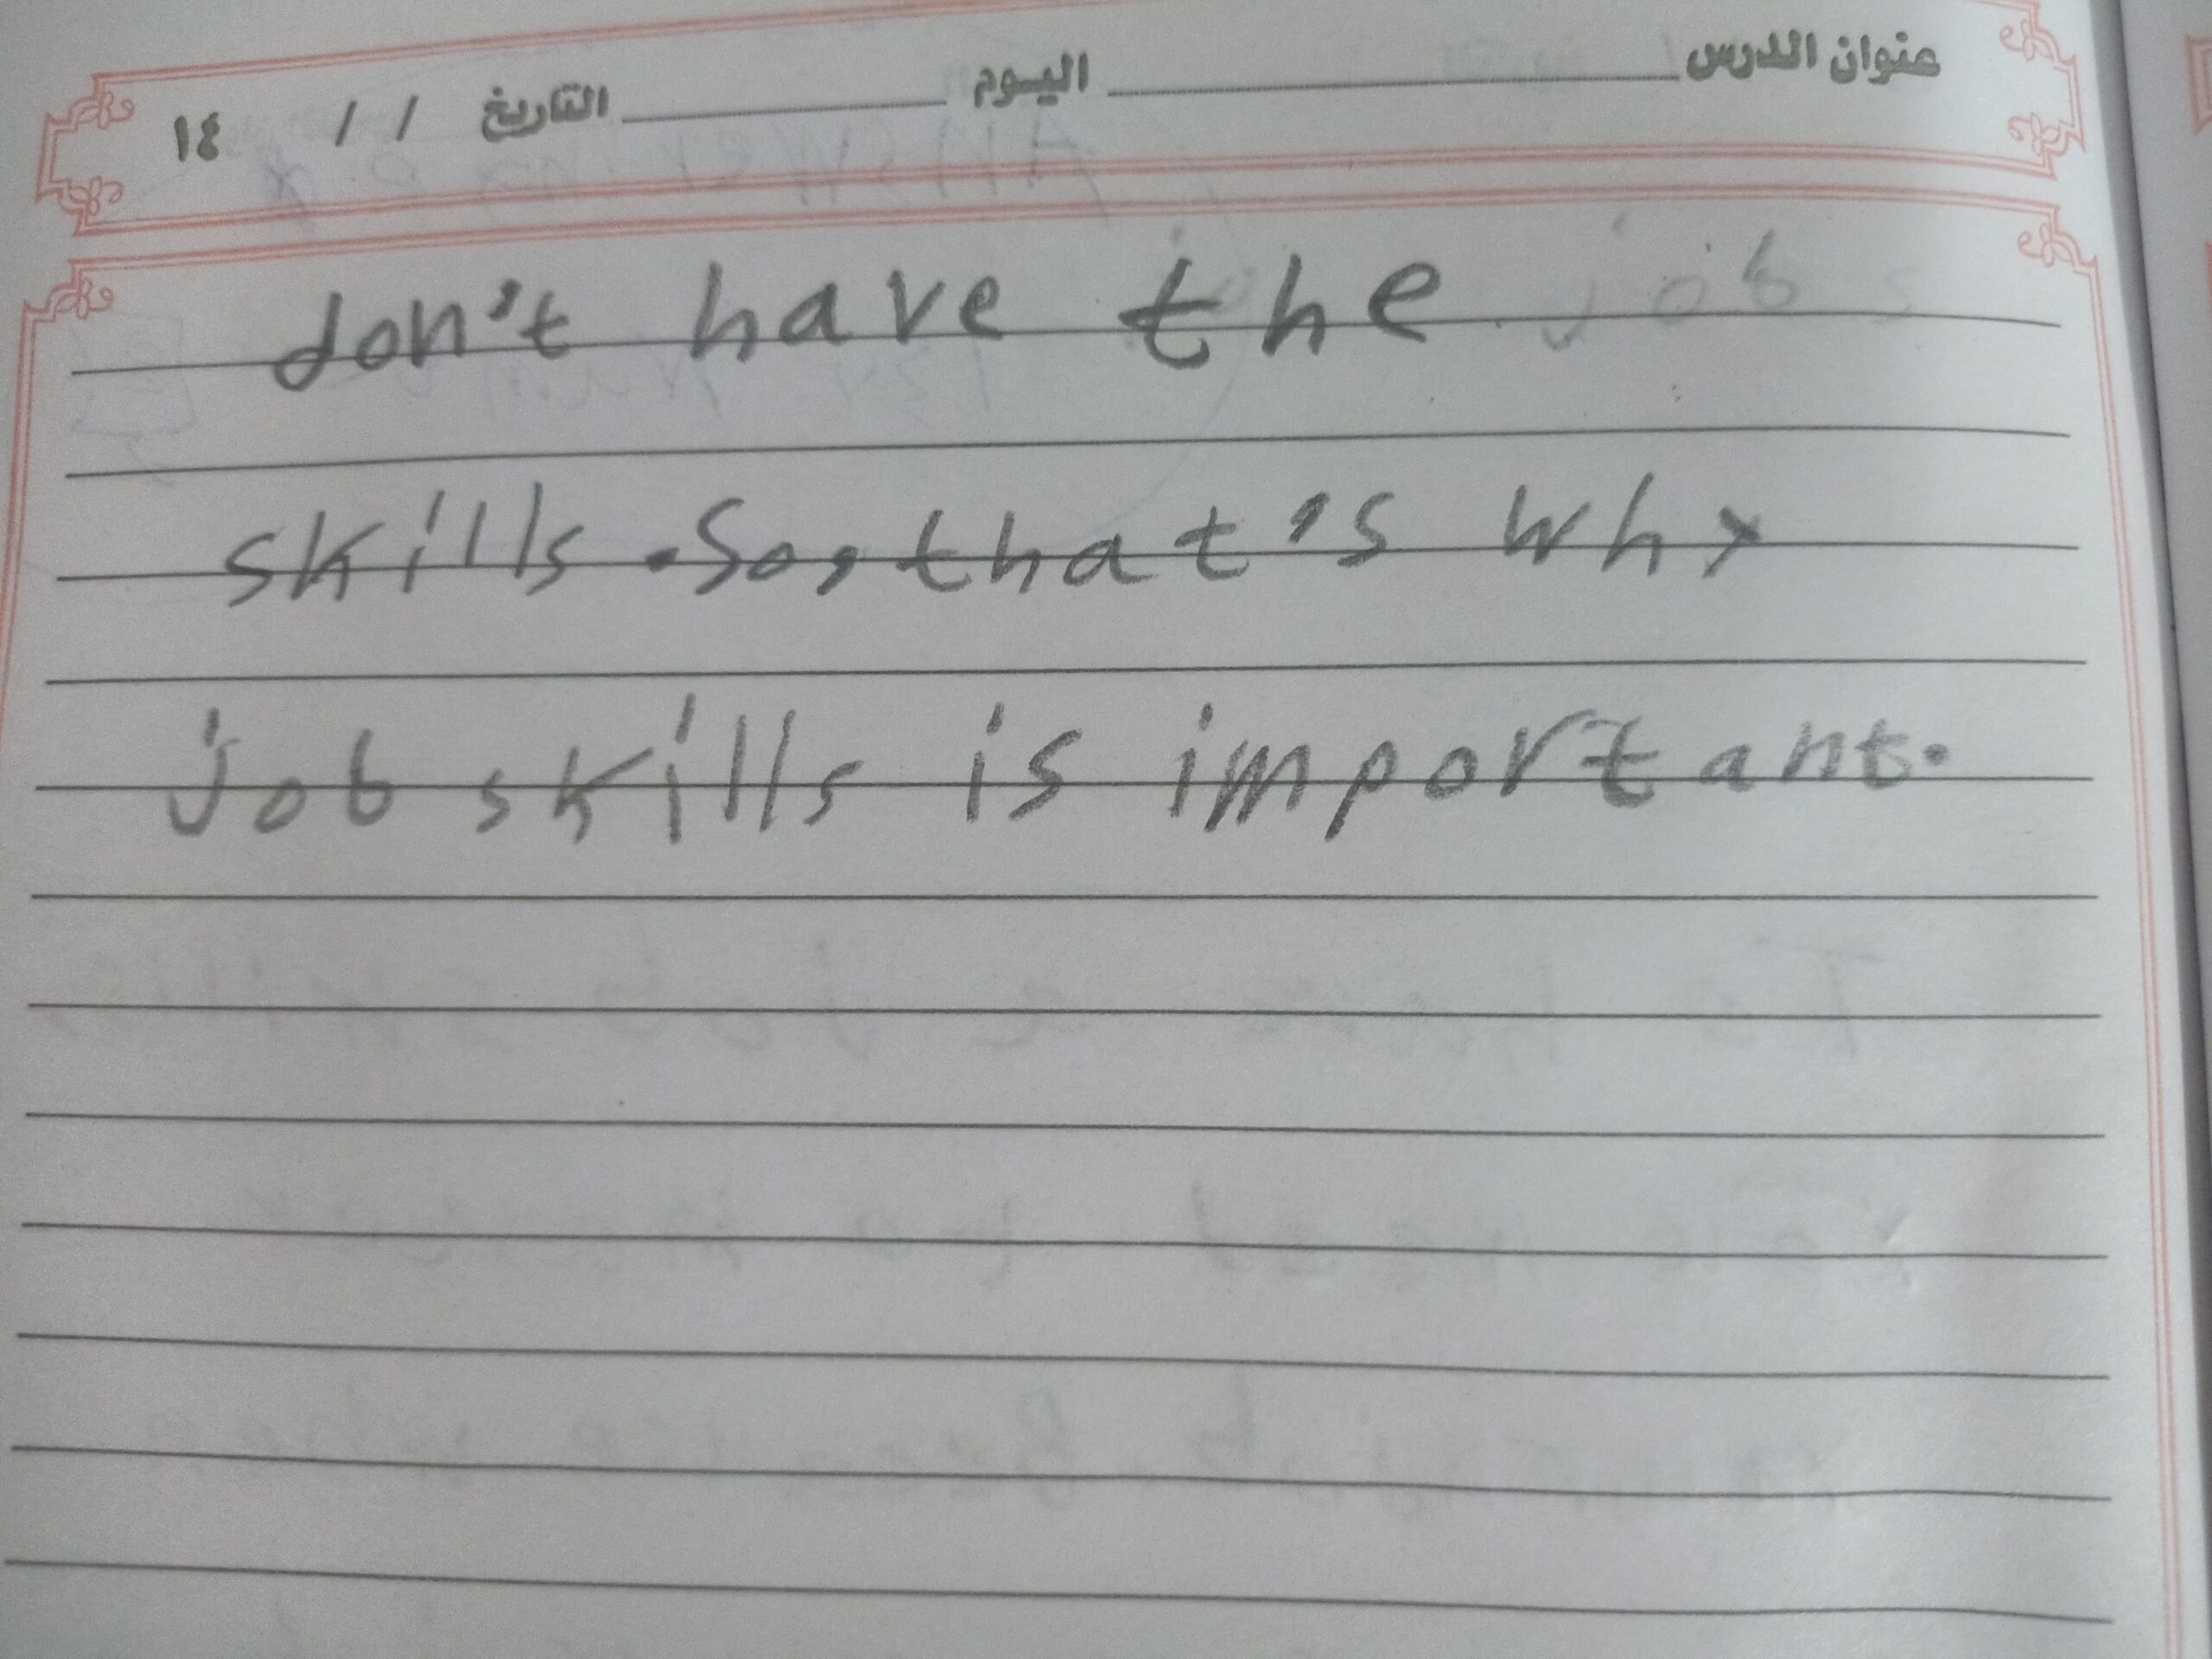 عنوان الدرس اليوم التاريخ / / ١٤
don't have the job
skills. So, that's why
job skills is important.